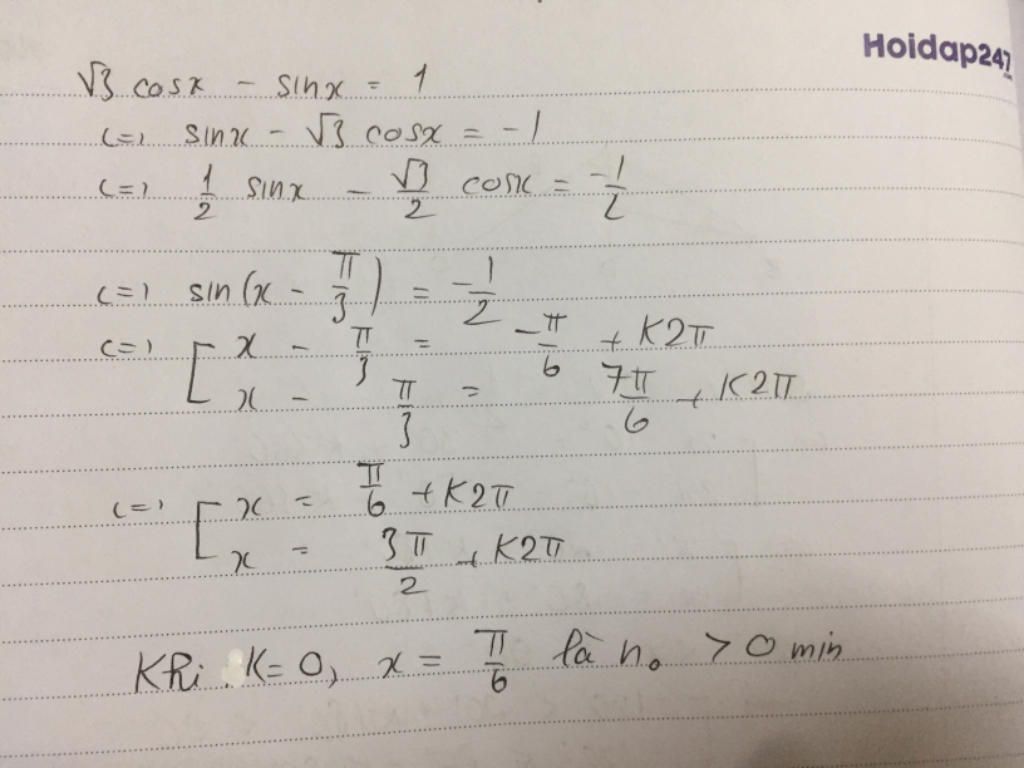 Hoidap247
√3 cosx - sinx = 1
<=> sinx - √3 cosx = -1
<=> 1/2 sinx - √3/2 cosx = -1/2
<=> sin(x - π/3) = -1/2
<=> [ x - π/3 = -π/6 + K2π
x - π/3 = 7π/6 + K2π
<=> [ x = π/6 + K2π
x = 3π/2 + K2π
Khi K=0, x = π/6 là no > 0 min